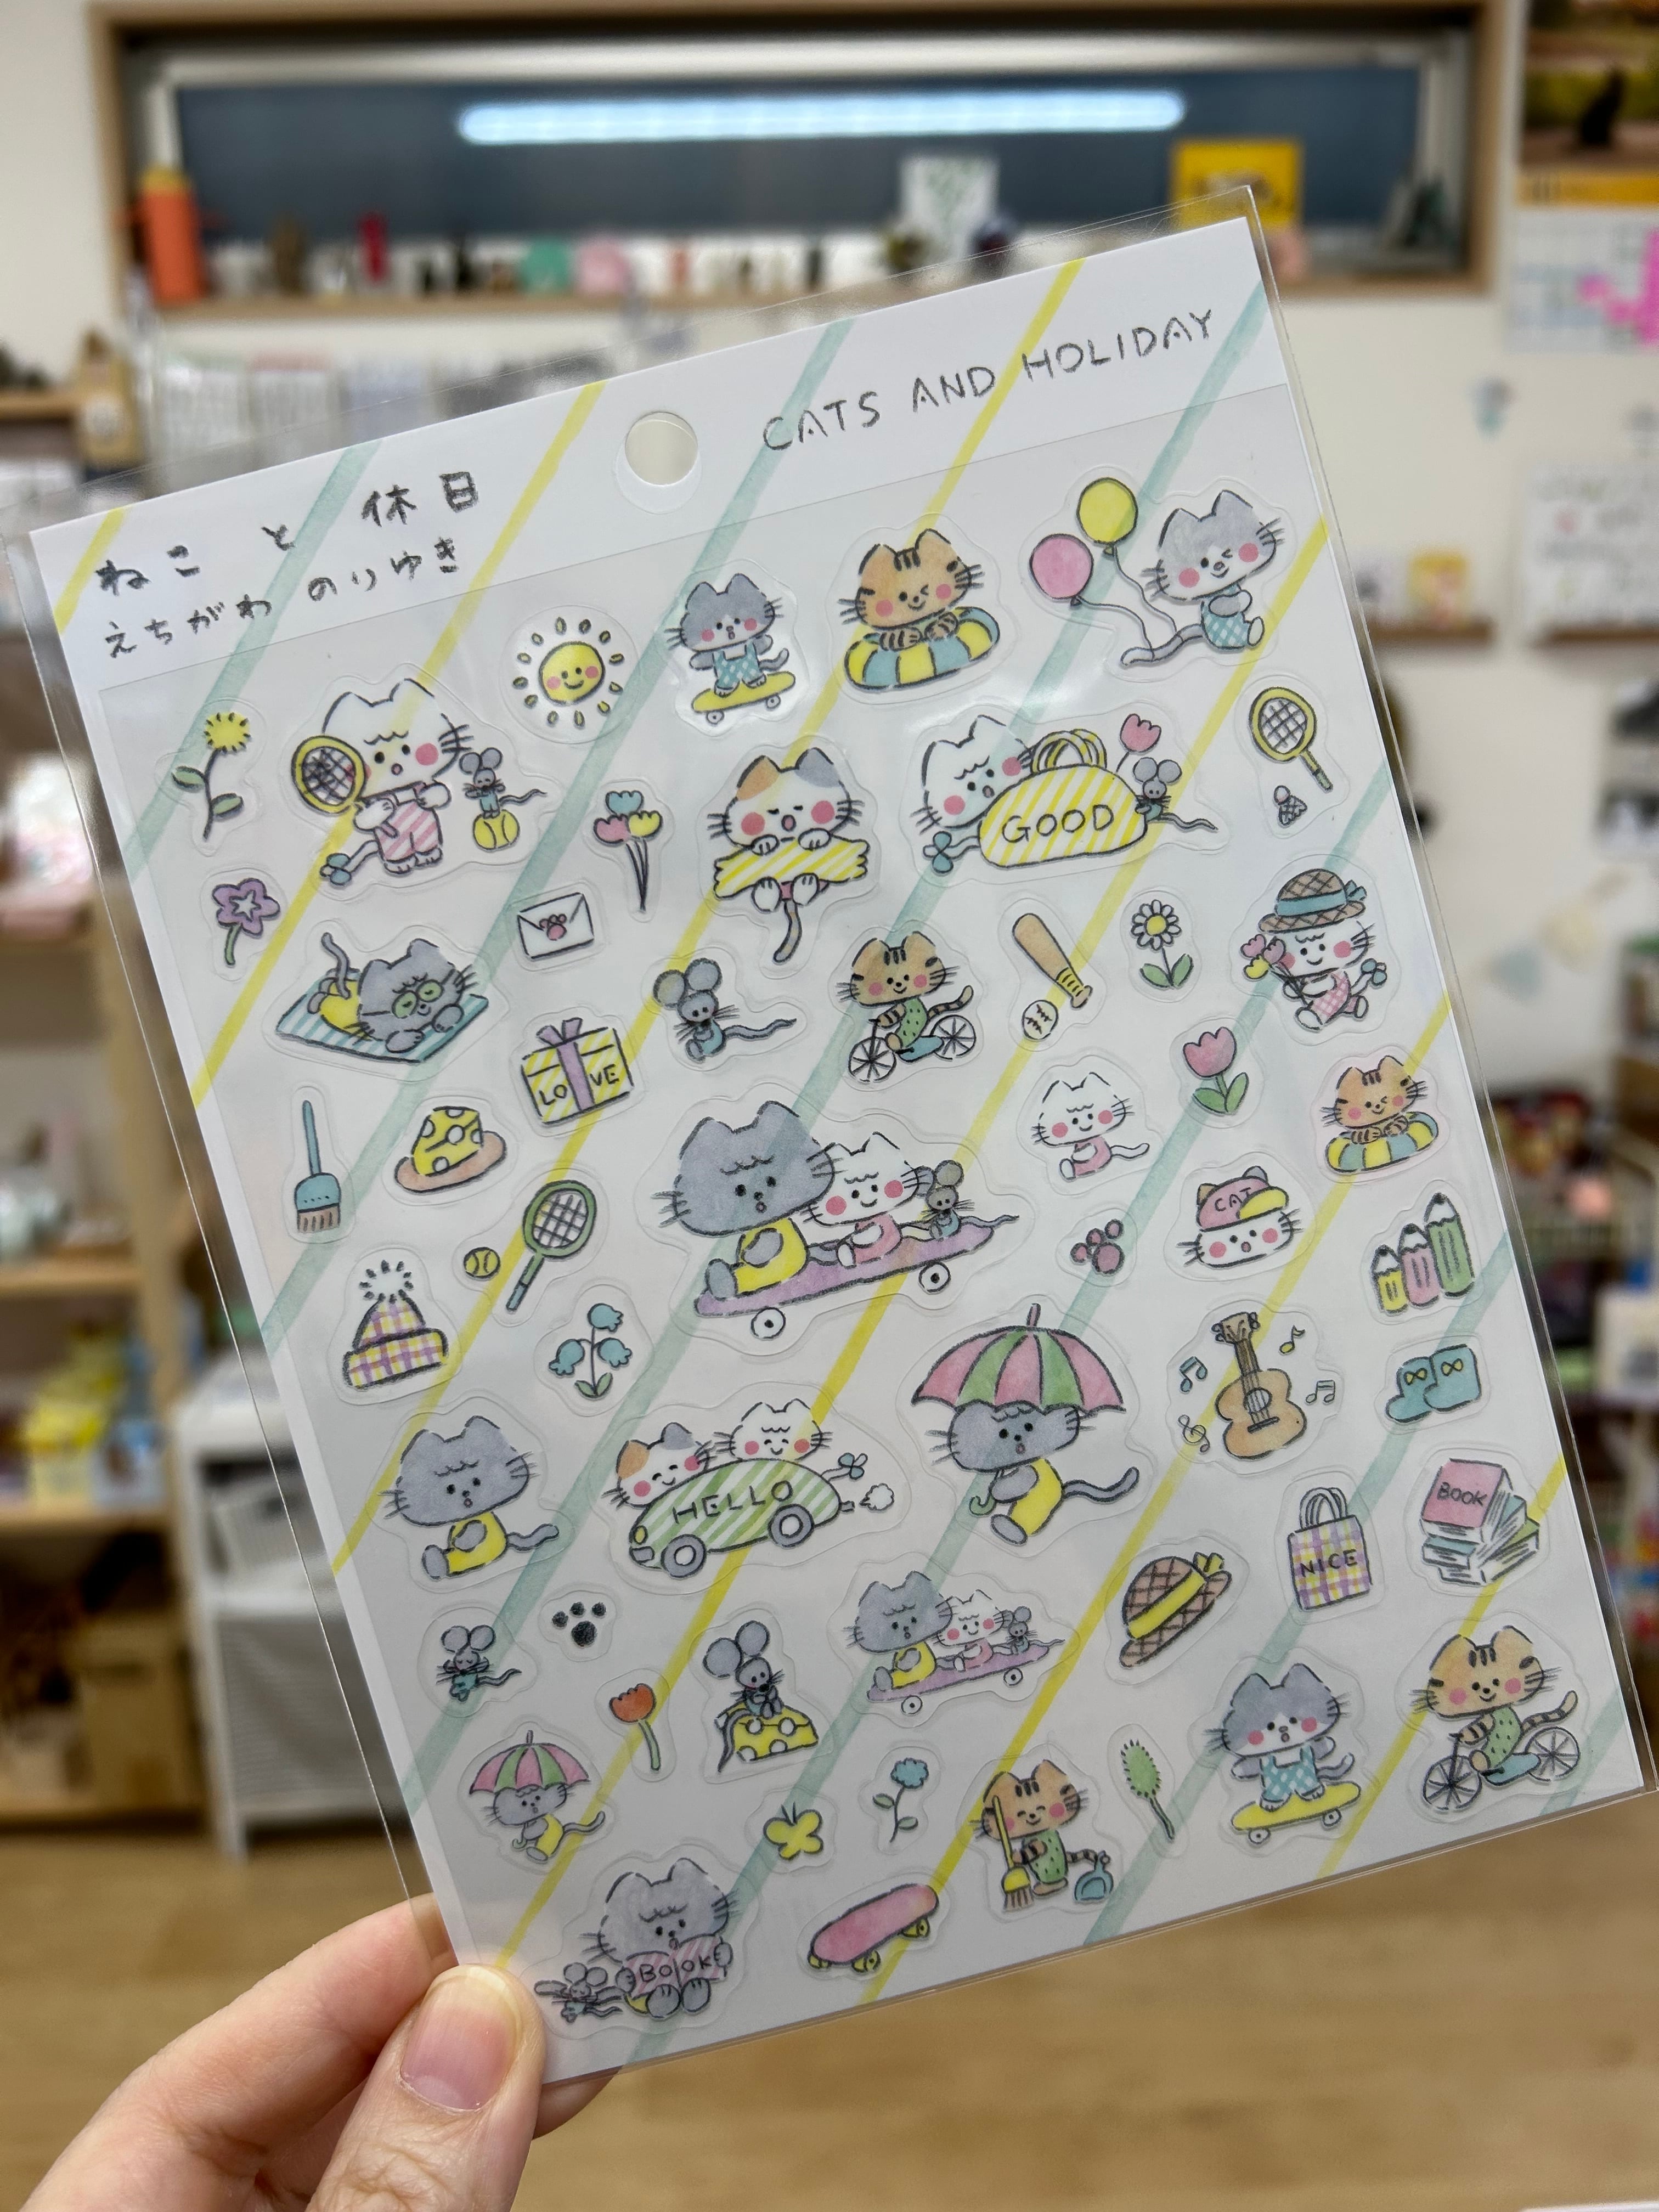 CATS AND HOLIDAY
ねこ と 休日
えちがわ のりゆき
GOOD
LOVE
CAT
HELLO
BOOK
NICE
BOOK